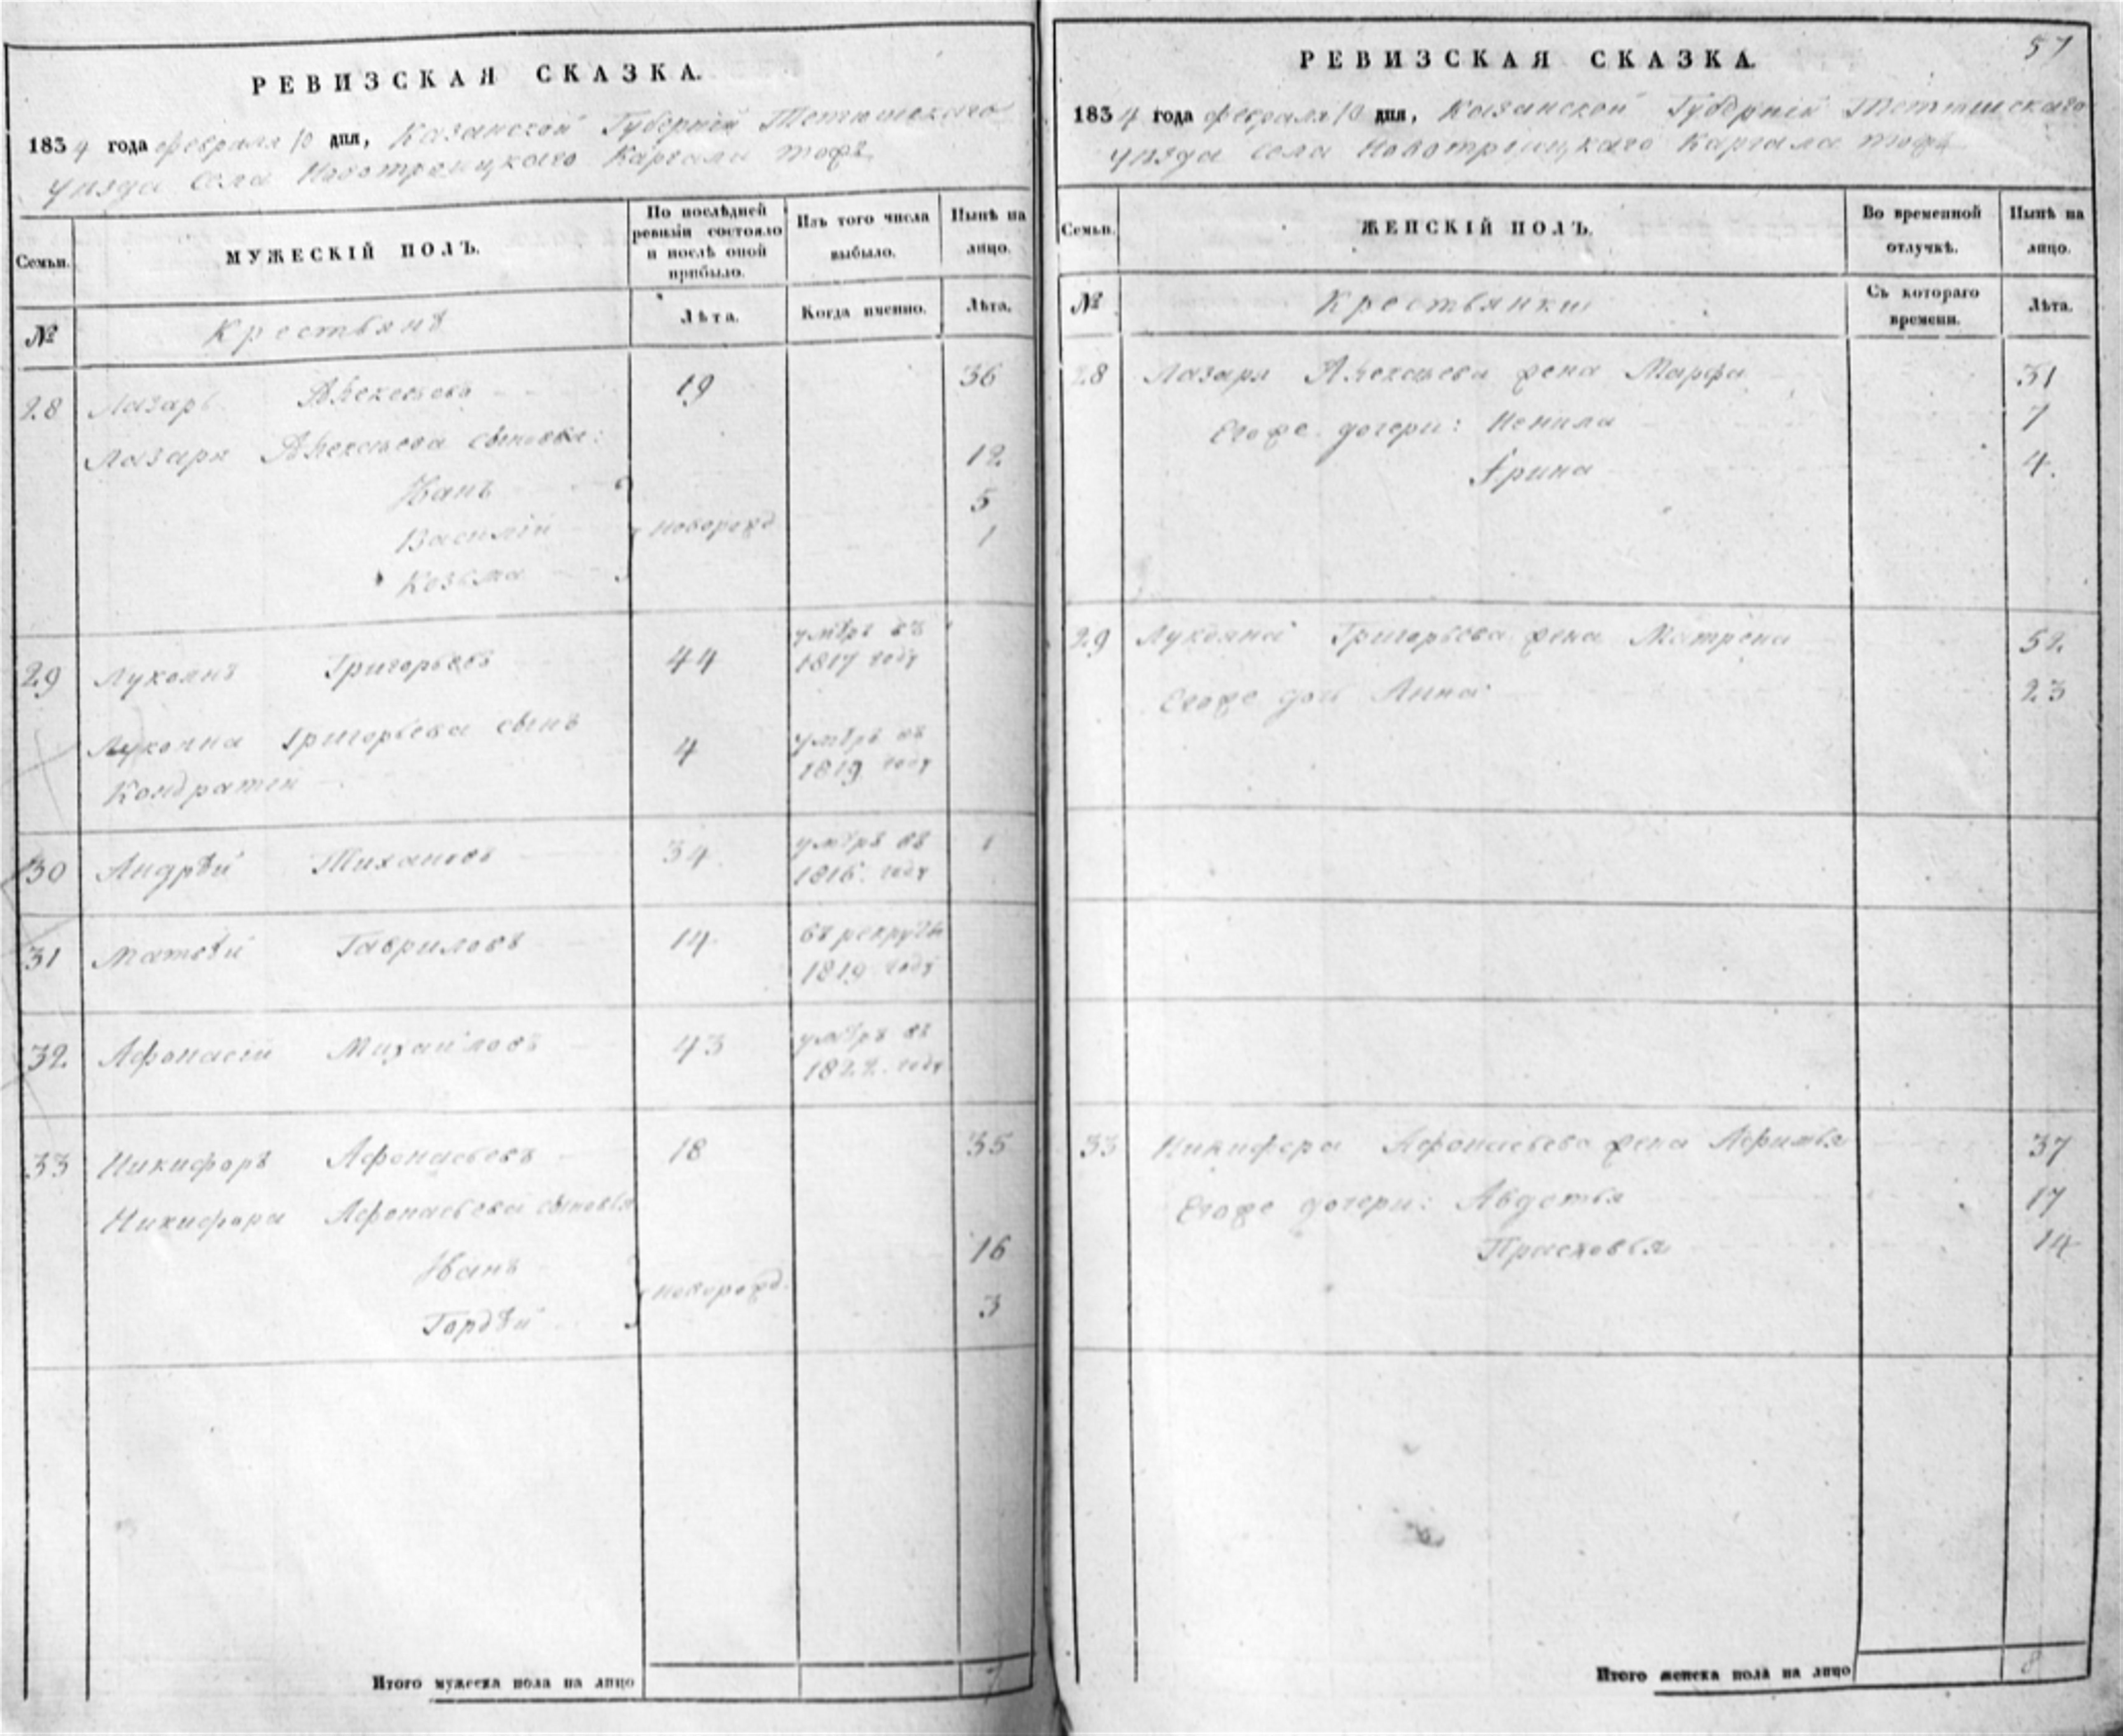 РЕВИЗСКАЯ СКАЗКА.
1834 года февраля 10 дня, Казанской Губерніи Тетюшскаго
уѣзда села Новотроицкаго Каргала тожъ
Семьи.
МУЖЕСКІЙ ПОЛЪ.
По послѣдней ревизіи состояло и послѣ оной прибыло.
Изъ того числа выбыло.
Нынѣ на лицо.
№
Крестьянъ
Лѣта.
Когда именно.
Лѣта.
28 Лазарь Алексѣевъ 19 36
Лазаря Алексѣева сыновья:
Иванъ 12
Василій новорожд 5
Козьма 1
29 Лукоянъ Григорьевъ 44 умѣръ въ 1817 году
Лукояна Григорьева сынъ
Кондратей 4 умѣръ въ 1819 году
30 Андрѣй Тихановъ 34 умѣръ въ 1816 году
31 Матвѣй Гавриловъ 14 въ рекруты 1819 году
32 Афонасій Михайловъ 43 умѣръ въ 1822 году
33 Никифоръ Афонасьевъ 18 35
Никифора Афонасьева сыновья
Иванъ 16
новорожд.
Гордѣй 3
Итого мужеска пола на лицо 7
57
РЕВИЗСКАЯ СКАЗКА.
1834 года февраля 10 дня, Казанской Губерніи Тетюшскаго
уѣзда села Новотроицкаго Каргала тожъ
Семьи.
ЖЕНСКІЙ ПОЛЪ.
Во временной отлучкѣ.
Нынѣ на лицо.
№
Крестьянки
Съ котораго времени.
Лѣта.
28 Лазаря Алексѣева жена Марфа 31
Егоже дочери: Ненила 7
Арина 4.
29 Лукояна Григорьева жена Матрена 52
Егоже дочь Анна 23
33 Никифора Афонасьева жена Афимья 37
Егоже дочери: Авдотья 17
Прасковья 14
Итого женска пола на лицо 8